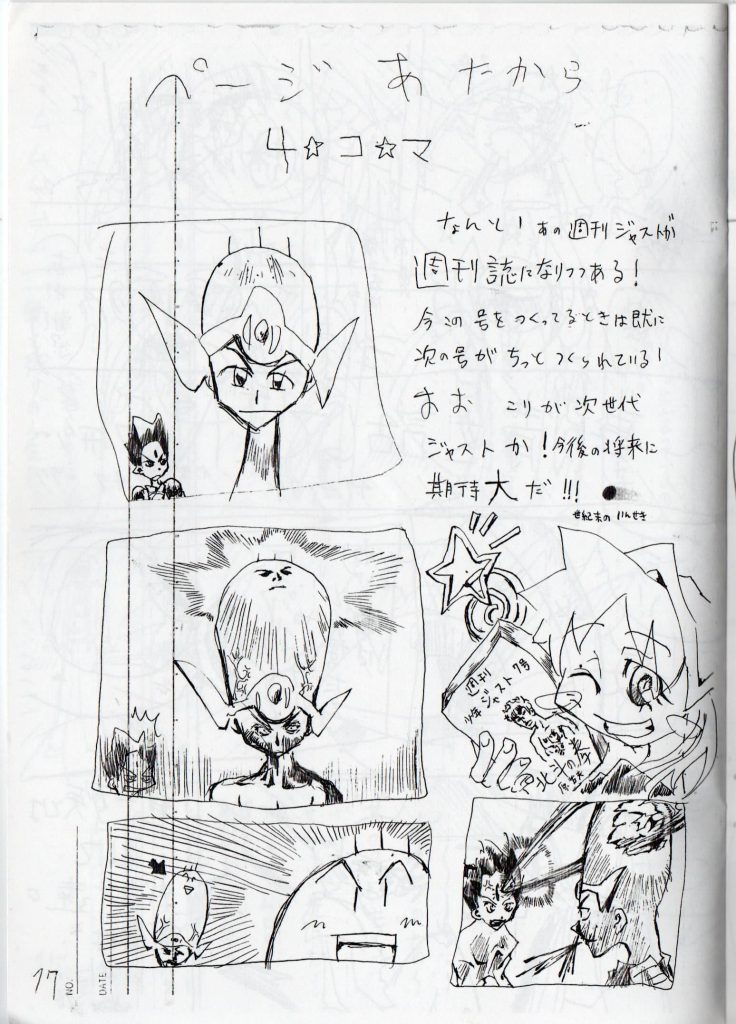 ページ あたから
4☆コ☆マ
なんと! あの週刊ジャストが
週刊誌になりつつある!
今この号をつくってるときは既に
次の号がちっとつくられている!
おお こりが次世代
ジャストか!今後の将来に
期待大だ!!!
世紀末のいんせき
週刊
少年ジャスト7号
北斗の拳
17
NO.
DATE